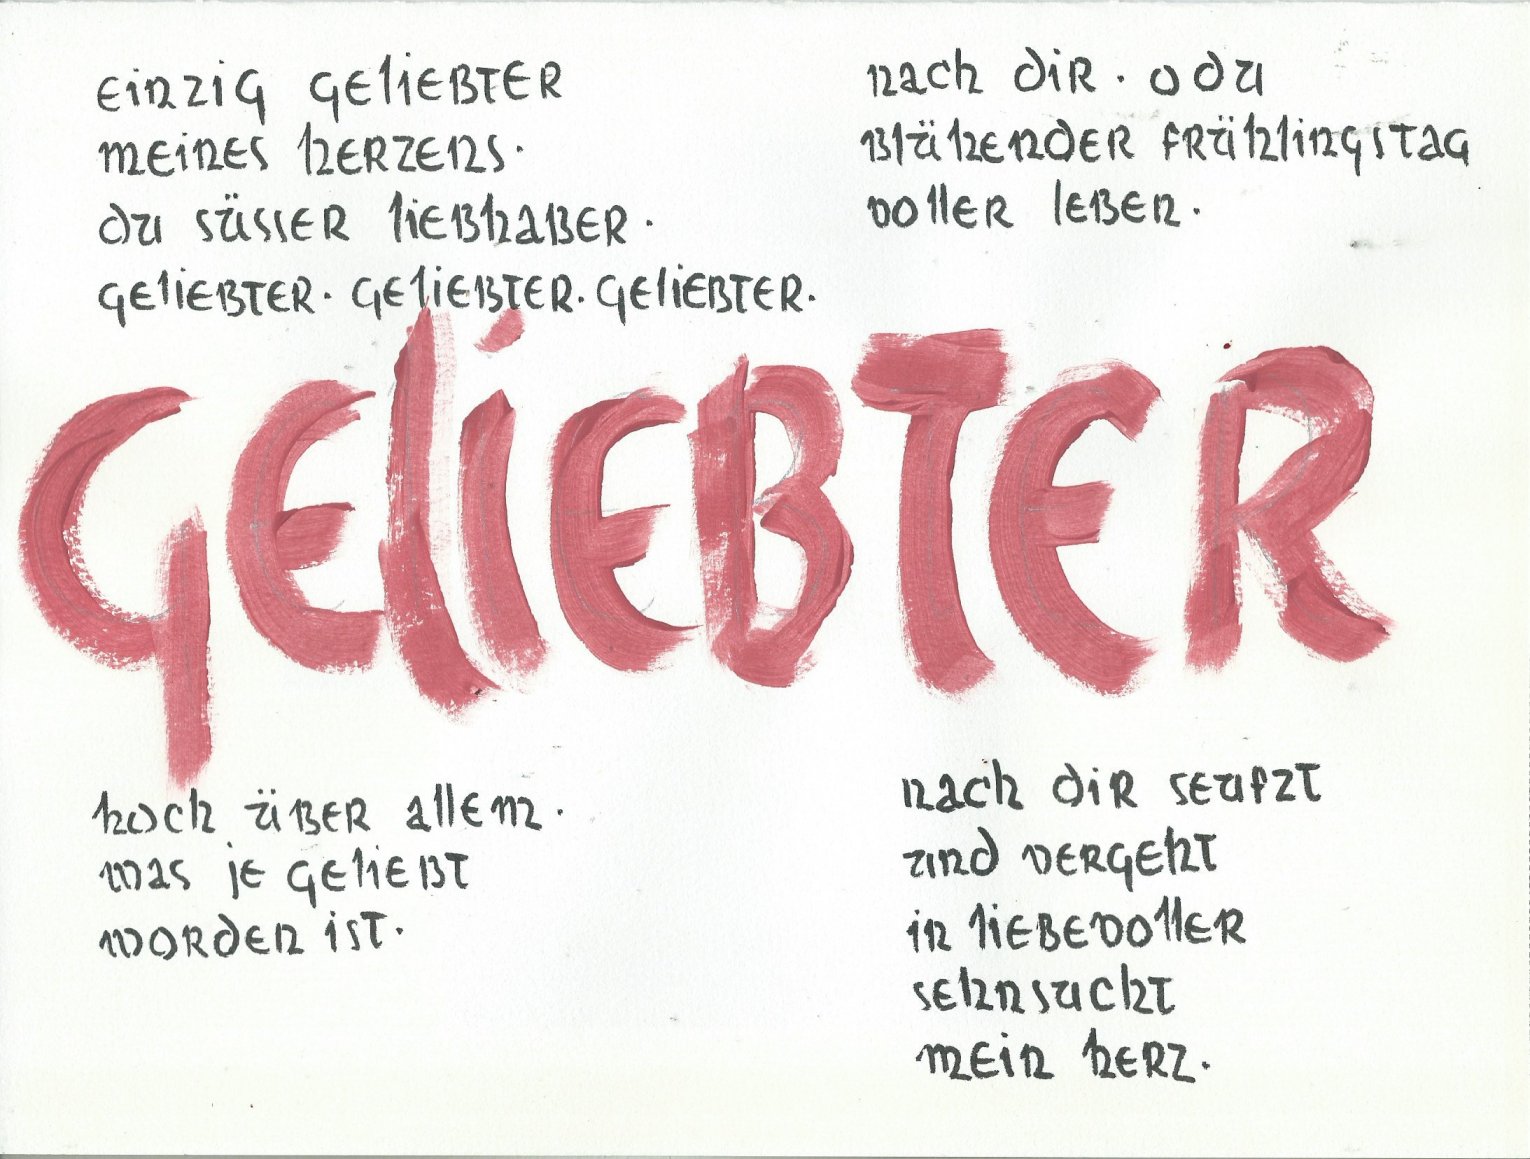 einzig geliebter
meines herzens.
du süsser liebhaber.
geliebter. geliebter. geliebter.
geliebter
hoch über allem.
was je geliebt
worden ist.
nach dir. o du
blühender frühlingstag
voller leben.
nach dir seufzt
und vergeht
in liebevoller
sehnsucht
mein herz.